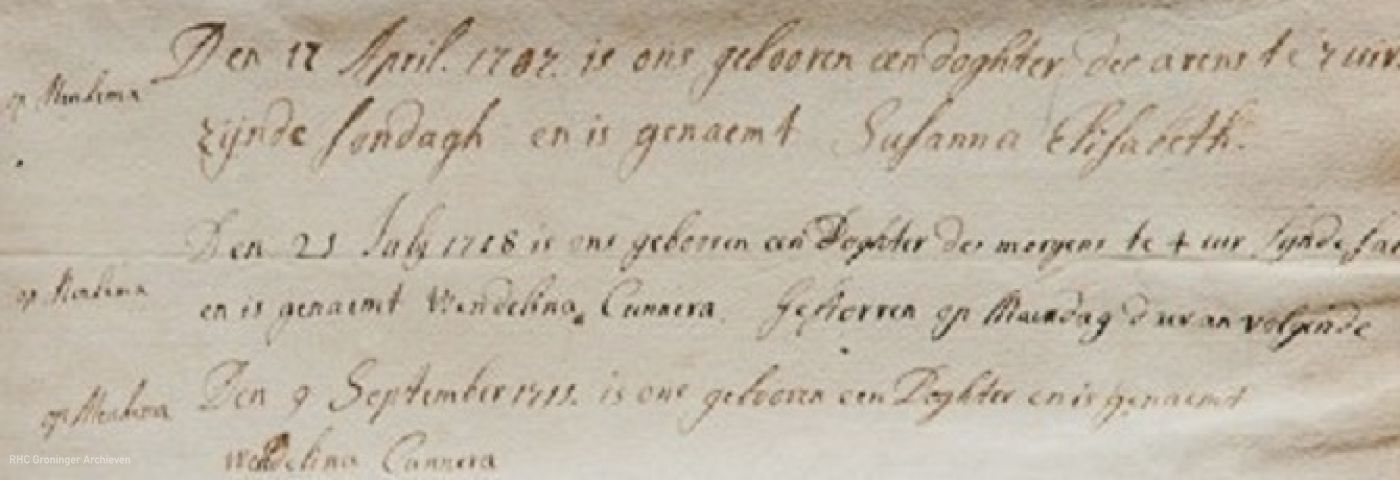 Den 17 April. 1707. is ons gebooren een doghter des avens te 7 uir
op Menkema
zijnde sondagh en is genaemt Susanna Elisabeth.
Den 21 July 1708 is ons gebooren een Doghter des morgens te 4 uur sijnde sat
op Menkema
en is genaemt Wendelina Cunnera. gestorven op Maendag daer an volgende
Den 9 September 1711. is ons gebooren een Doghter en is genaemt
op Menkema
Wendelina Cunnera
RHC Groninger Archieven